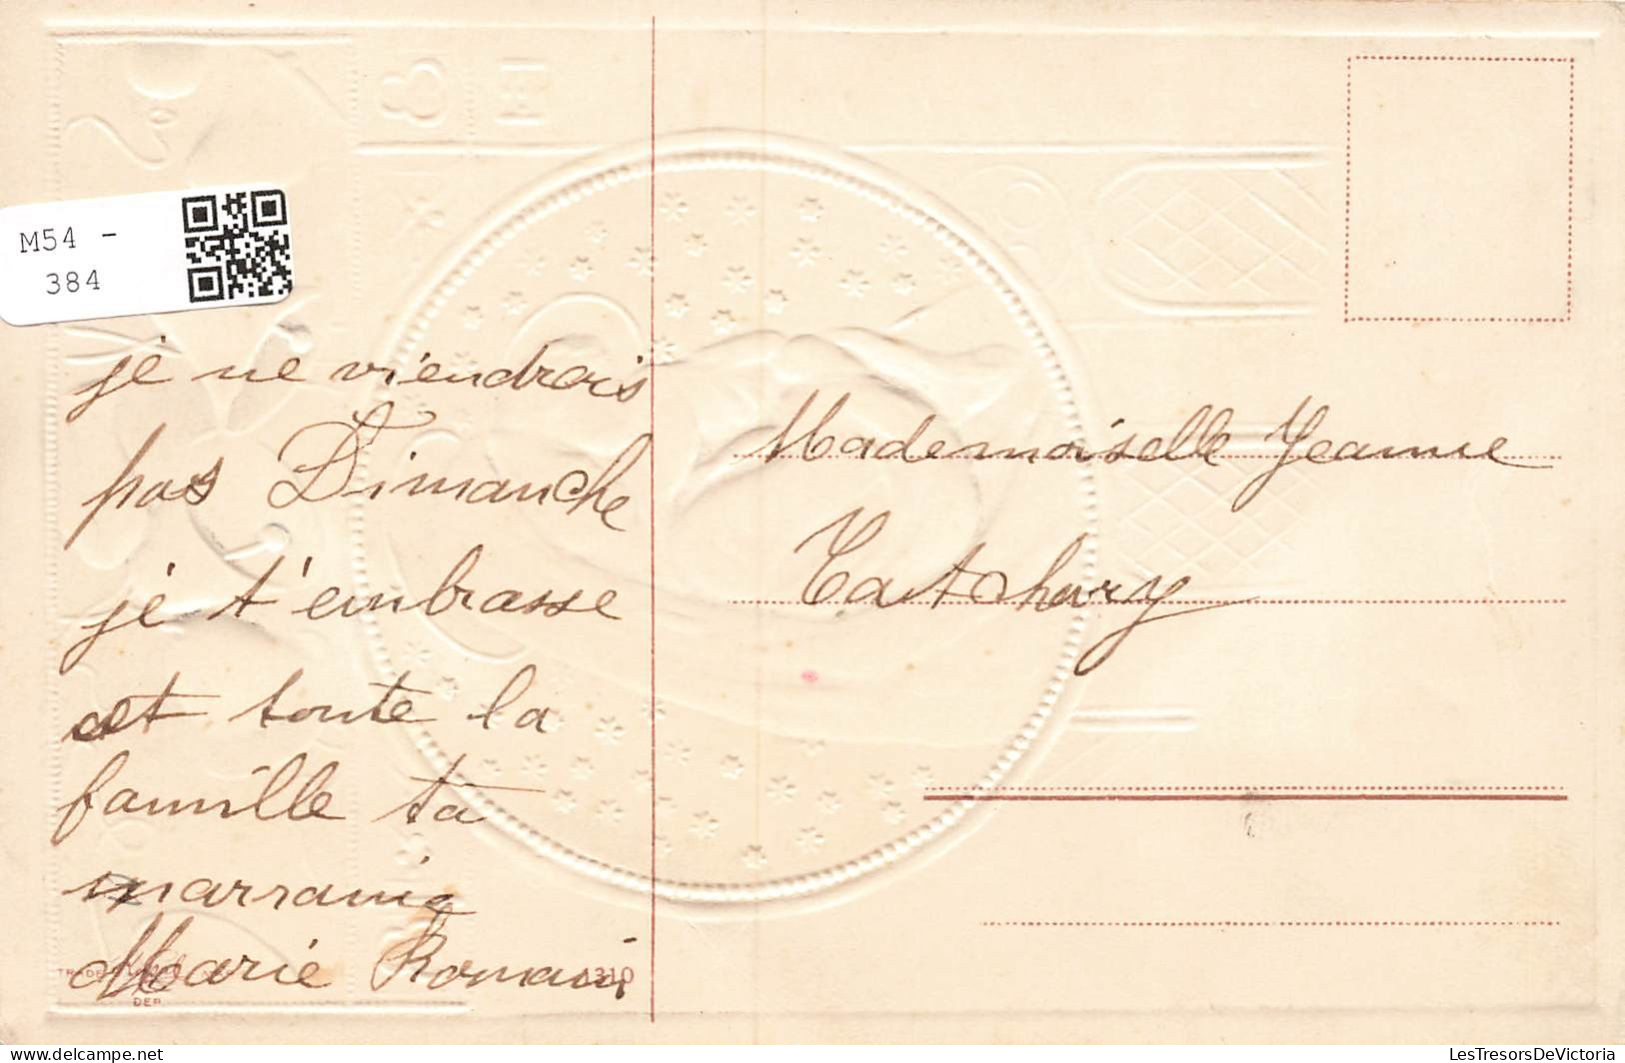 M54 -
384
je ne viendrais
pas Dimanche
je t'embrasse
et toute la
famille ta
marraine
Marie Romain
Mademoiselle Jeanne
TRADE
DEP.
1310
© LesTresorsDeVictoria / Delcampe.net